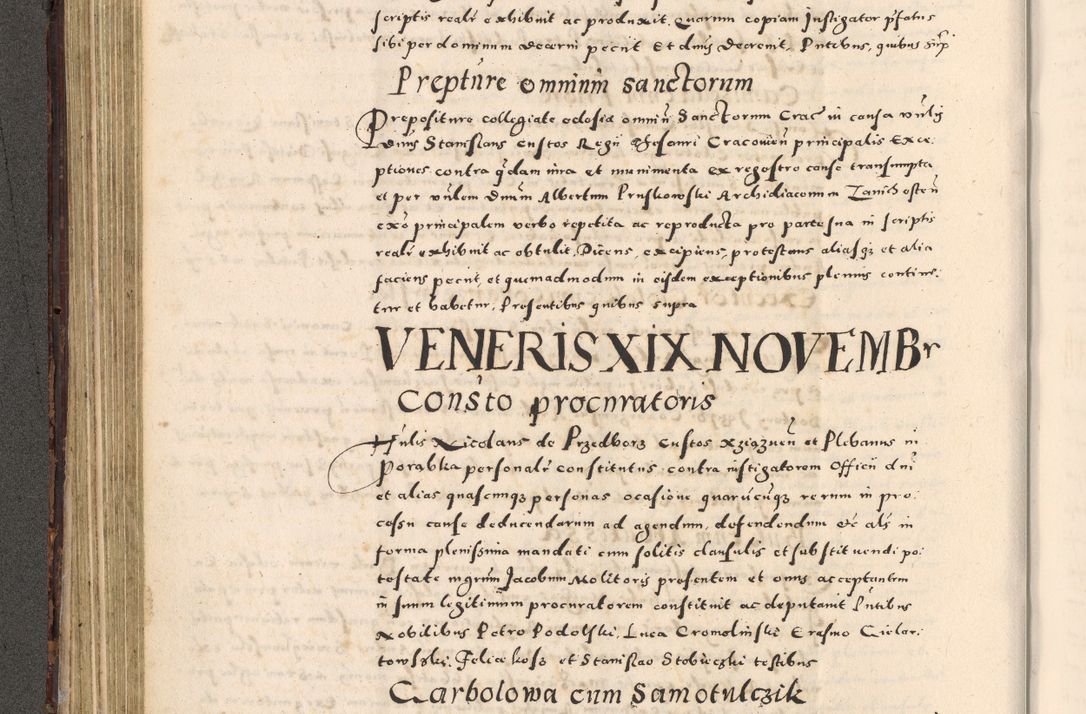 scriptis realiter exhibuit ac produxit, Quarum copiam Instigator pfatus
sibi per dominum decerni petiit Et dnus decrevit, Pntibus, quibus supra
Prepture omnium sanctorum
Prepositure collegiate ecclesia omniu Sanctorum Crac in causa
Dnus Stanislaus Custos Regni Thesauri Cracovien principalis Exce
ptiones contra quedam iura et munimenta ex regestro cause transumpta
et per Dnum Albertum Pruskowski Archidiaconum Zanichosten
principalem verbo repetita ac reproducta pro parte sua in scriptis
realr exhibuit ac obtulit, Dicens, excipiens, protestans aliasqz et alia
faciens petiit, et quemadmodum in eisdem exceptionibus plenius contine-
tur et habetur, Presentibus quibus supra
VENERIS XIX NOVEMBr
Consto procuratoris
Nicolaus de Przedborz Custos et Plebanus in
Porabka personalr constitutus contra instigatorem Officii dni
et alias quascunqz personas ocasione quarucuqz rerum in pro-
cessu cause deducendarum ad agendum, defendendum &c als in
forma plenissima mandati cum solitis clausulis et substituendi po-
testate mgrum Jacobum Molitoris presentem et onus acceptantem
in suum legitimum procuratorem constituit ac deputavit Pntibus
Nobilibus Petro Podolski, Luca Cromolinski Erasmo Cielor-
towski, Felice koss et Stanislao testibus
Garbolowa cum Samotulczik